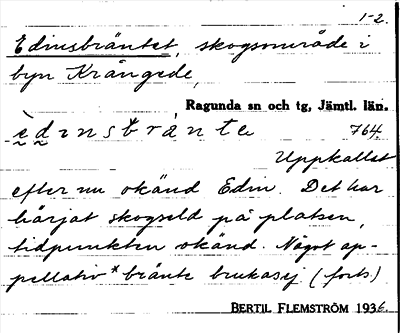 1-2.
Edinsbräntet, skogsområde i
byn Krångede,
Ragunda sn och tg, Jämtl. län.
764.
Uppkallat
efter nu okänd Edin. Det har
härjat skogseld på platsen,
tidpunkten okänd. Något ap-
pellativ *bränte brukas ej (forts.)
BERTIL FLEMSTRÖM 1936.